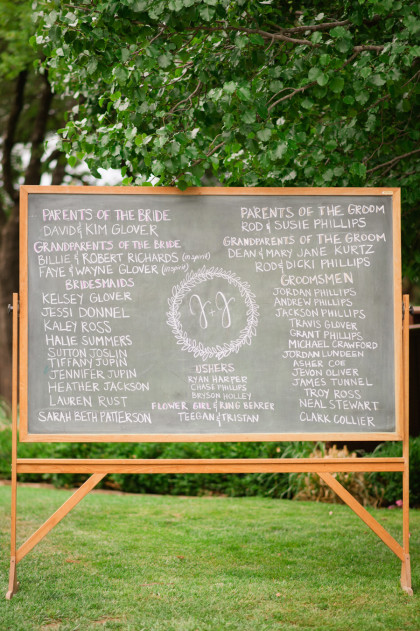 PARENTS OF THE BRIDE
DAVID & KIM GLOVER
GRANDPARENTS OF THE BRIDE
BILLIE & ROBERT RICHARDS (in spirit)
FAYE & WAYNE GLOVER (in spirit)
BRIDESMAIDS
KELSEY GLOVER
JESSI DONNEL
KALEY ROSS
HALIE SUMMERS
SUTTON JOSLIN
TIFFANY JUPIN
JENNIFER JUPIN
HEATHER JACKSON
LAUREN RUST
SARAH BETH PATTERSON
J + J
USHERS
RYAN HARPER
CHASE PHILLIPS
BRYSON HOLLEY
FLOWER GIRL & RING BEARER
TEEGAN & TRISTAN
PARENTS OF THE GROOM
ROD & SUSIE PHILLIPS
GRANDPARENTS OF THE GROOM
DEAN & MARY JANE KURTZ
ROD & DICKI PHILLIPS
GROOMSMEN
JORDAN PHILLIPS
ANDREW PHILLIPS
JACKSON PHILLIPS
TRAVIS GLOVER
GRANT PHILLIPS
MICHAEL CRAWFORD
JORDAN LUNDEEN
ASHER COE
JEVON OLIVER
JAMES TUNNEL
TROY ROSS
NEAL STEWART
CLARK COLLIER